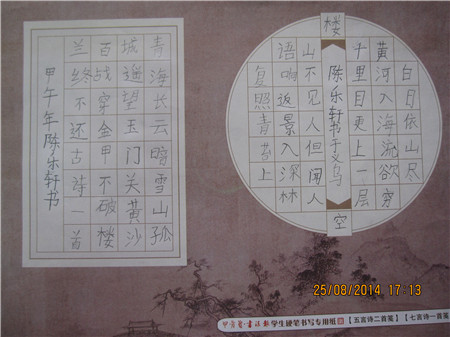 白日依山尽
黄河入海流欲穷
千里目更上一层
楼
陈乐轩书于义乌
空
山不见人但闻人
语响返景入深林
复照青苔上
青海长云暗雪山孤
城遥望玉门关黄沙
百战穿金甲不破楼
兰终不还古诗一首
甲午年陈乐轩书
25/08/2014 17:13
学生硬笔书写专用纸 【五言诗二首笺】 【七言诗一首笺】